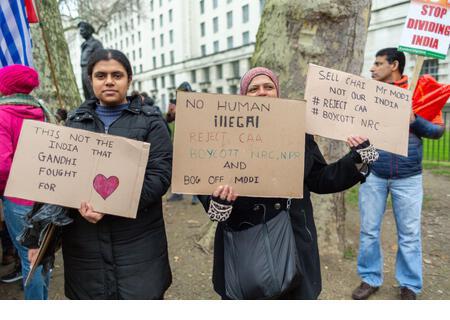 THIS IS NOT THE
INDIA THAT
GANDHI
FOUGHT
FOR
NO HUMAN
illEGAl
REJECT CAA
BOYCOTT NRC, NPR
AND
BOG OFF MODI
SELL CHAI MR MODI
NOT OUR INDIA
# REJECT CAA
# BOYCOTT NRC
STOP
DIVIDING
INDIA